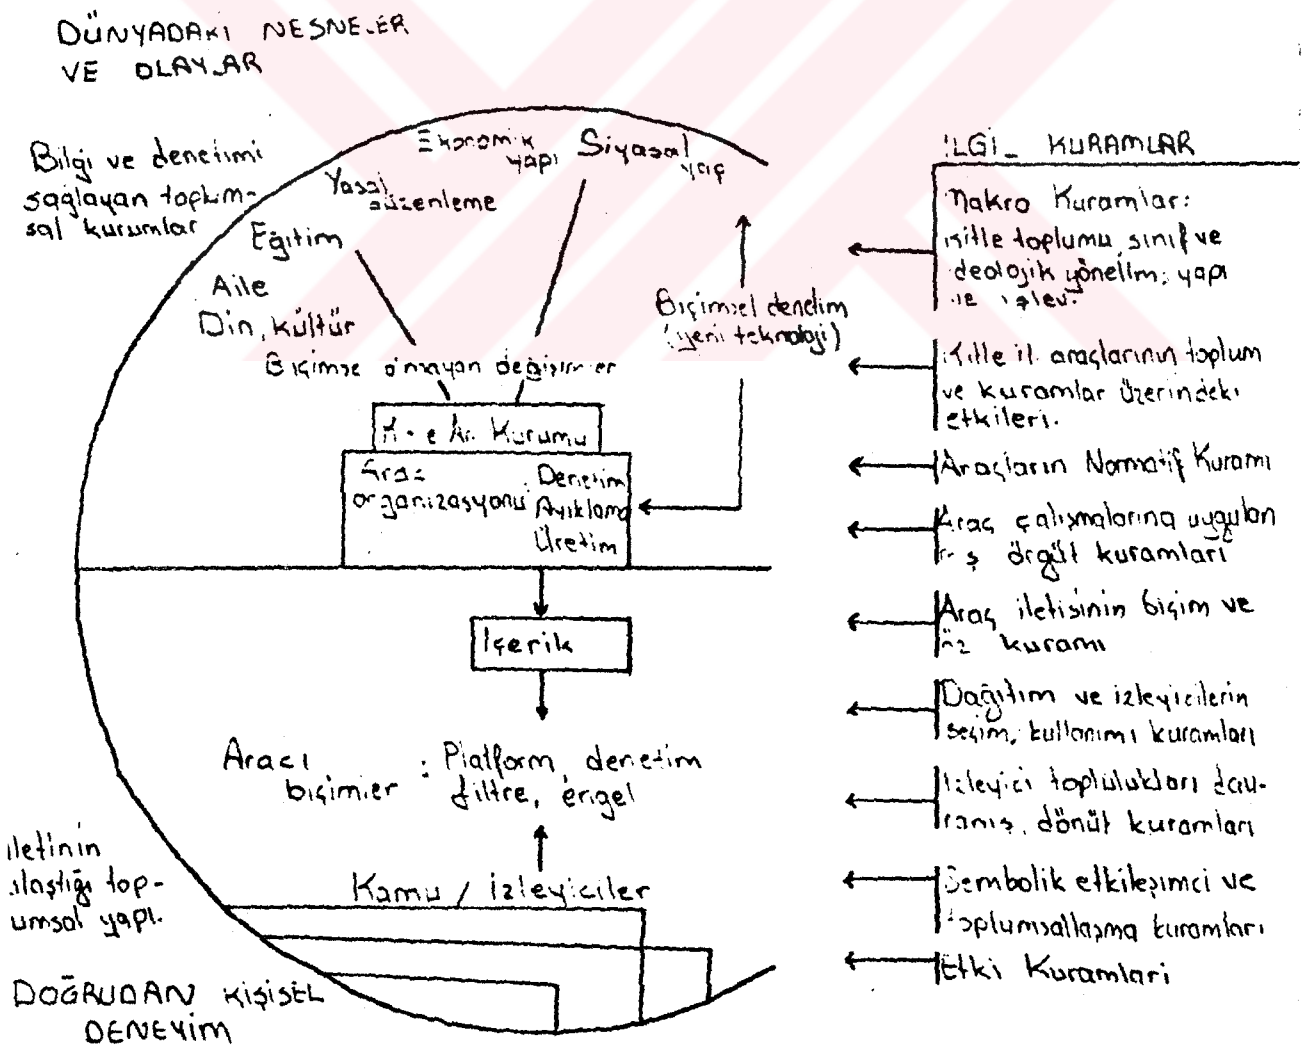 DÜNYADAKI NESNELER
VE OLAYLAR
Bilgi ve denetimi
sağlayan toplum-
sal kurumlar
Ekonomik
yapı
Siyasal
yapı
Yasal
düzenleme
Eğitim
Aile
Din, kültür
Biçimsel denetim
(yeni teknoloji)
Biçimse olmayan değişimler
Ar. Kurumu
Araç
organizasyonu
: Denetim
Ayıklama
Üretim
İçerik
Aracı
biçimler
: Platform, denetim
filtre, engel
iletinin
ulaştığı top-
lumsal yapı.
Kamu / İzleyiciler
DOĞRUDAN KİŞİSEL
DENEYİM
İLGİLİ KURAMLAR
Makro Kuramlar:
Kitle toplumu, sınıf ve
ideolojik yönelim, yapı
ve işlev.
Kitle il. araçlarının toplum
ve kuramlar üzerindeki
etkileri.
Araçların Normatif Kuramı
Araç çalışmalarına uygulan
mış örgüt kuramları
Araç iletisinin biçim ve
öz kuramı
Dağıtım ve izleyicilerin
seçim, kullanımı kuramları
İzleyici toplulukları dav-
ranış, dönüt kuramları
Sembolik etkileşimci ve
toplumsallaşma kuramları
Etki Kuramlari